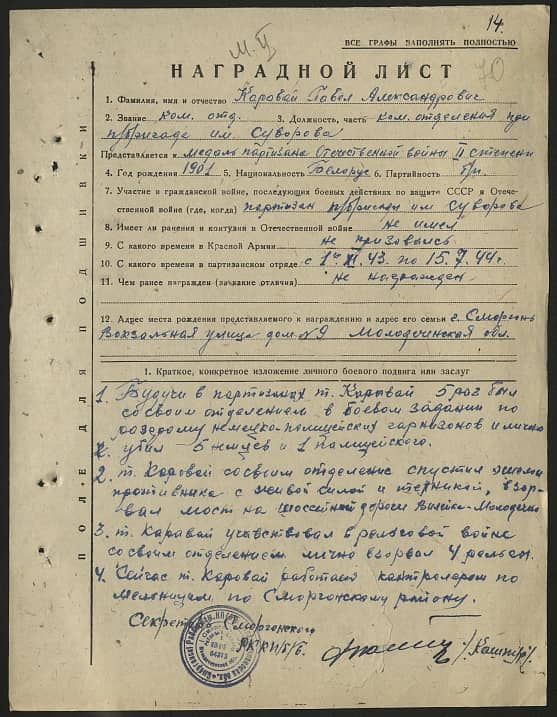 14.
М. II
70
ВСЕ ГРАФЫ ЗАПОЛНЯТЬ ПОЛНОСТЬЮ
НАГРАДНОЙ ЛИСТ
1. Фамилия, имя и отчество Каровай Павел Александрович
2. Звание ком. отд. 3. Должность, часть ком. отделения при
п/бригаде им. Суворова
Представляется к медаль партизана Отечественной войны II степени
4. Год рождения 1901 5. Национальность Белорус 6. Партийность б/п
7. Участие в гражданской войне, последующих боевых действиях по защите СССР и Отече-
ственной войне (где, когда) партизан п/бригады им Суворова
8. Имеет ли ранения и контузии в Отечественной войне не имел
9. С какого времени в Красной Армии не призывался
10. С какого времени в партизанском отряде с 1го XI.43. по 15.7.44г.
11. Чем ранее награжден (за какие отличия) не награжден
12. Адрес места рождения представляемого к награждению и адрес его семьи г. Сморгонь
Вокзальная улица дом №9 Молодечинская обл.
ПОЛЕ ДЛЯ ПОДШИВКИ
1. Краткое, конкретное изложение личного боевого подвига или заслуг
1. Будучи в партизанах т. Карывай 5 раз был
со своим отделением в боевом задании по
разгрому немецко-полицейских гарнизонов и лично
убил 5 немцев и 1 Палицейского.
2. т. Каровай со своим отделение спустил эшелон
противника с живой силой и техникой, взор-
вал мост на шоссейной дороги Вилейка-Молодечно
3. т. Каравай учавствовал в рельсовой войне
со своим отделением лично взорвал 4 рельсы.
4. Сейчас т. Каровай работает кантролером по
мельницам по Сморгонскому району.
Секретарь Сморгонского
РК КП/б/Б.